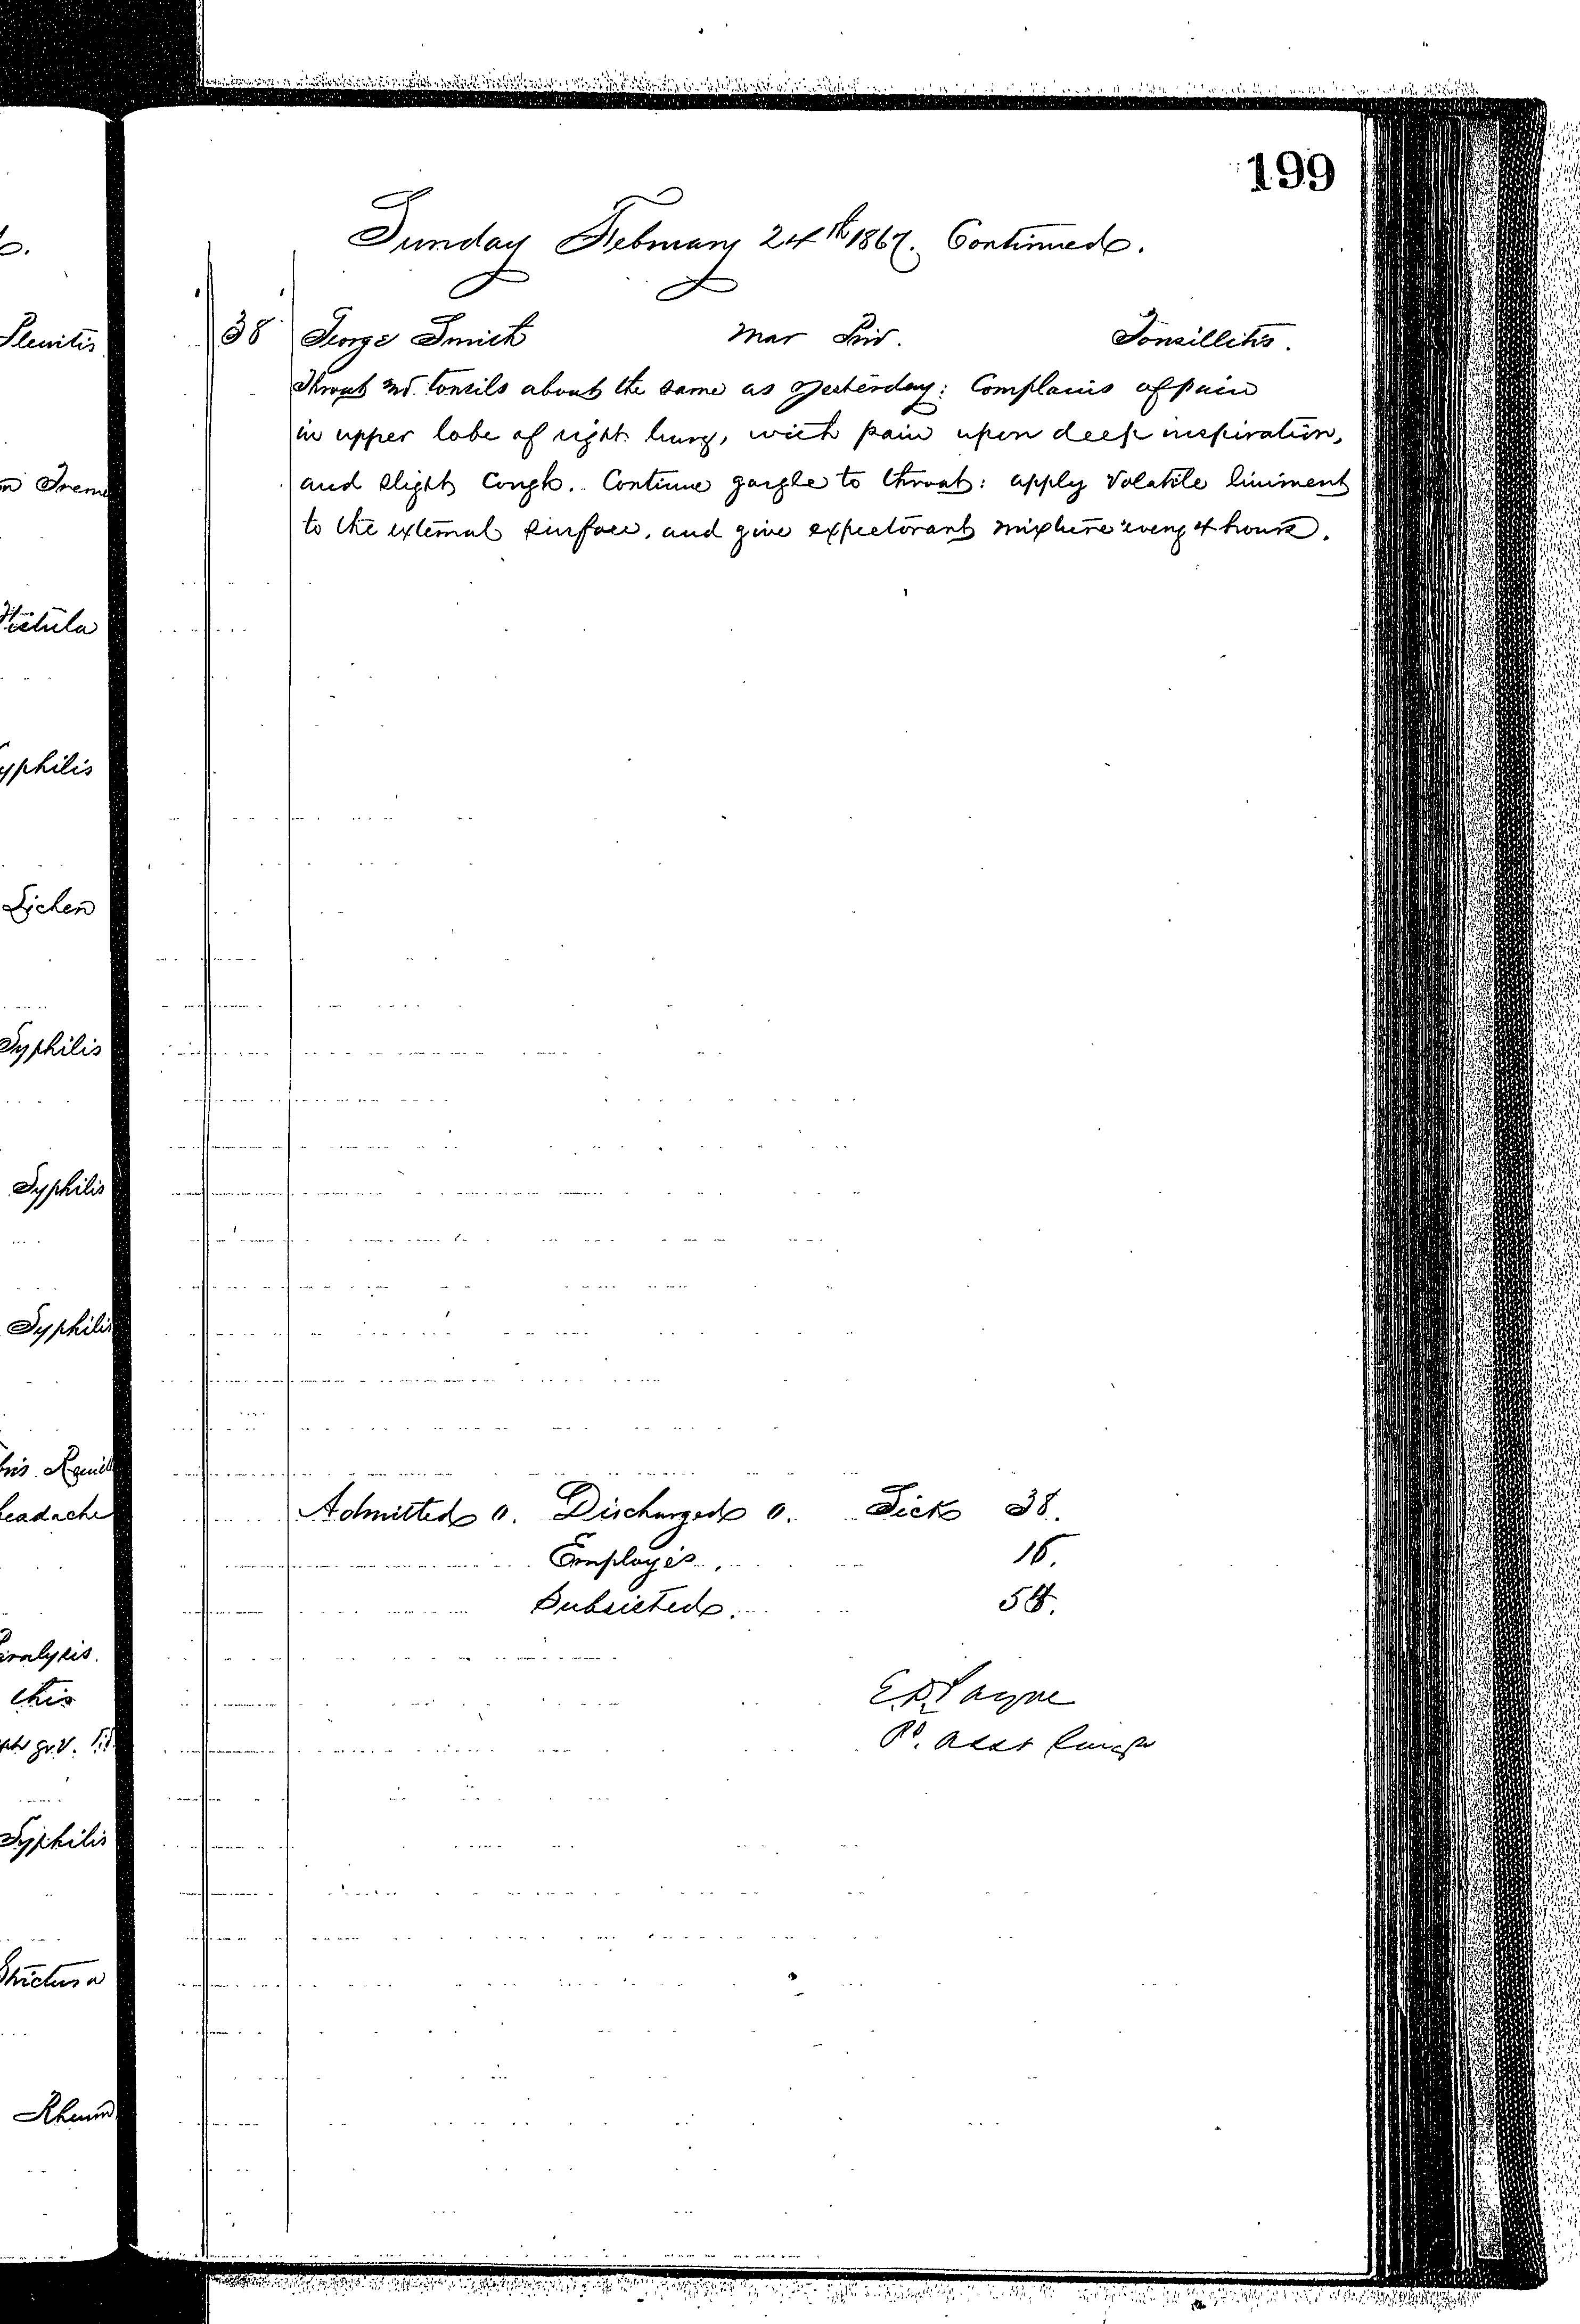 199
Sunday February 24th 1867. Continued.
38 George Smith Mar Priv. Tonsillitis.
Throat and tonsils about the same as yesterday: Complains of pain
in upper lobe of right lung, with pain upon deep inspiration,
and slight Cough. Continue gargle to throat: apply Volatile liniment
to the external surface, and give expectorant mixture every 4 hours.
Admitted 0. Discharged 0. Sick 38.
Employés. 16.
Subsisted. 54.
E R Payne
Pd. Asst Surgn
Pleuritis
Fistula
yphilis
Lichen
Syphilis
Syphilis
Syphilis
headache
Paralysis.
this
gr. V.
Syphilis
Strictura
Rheum